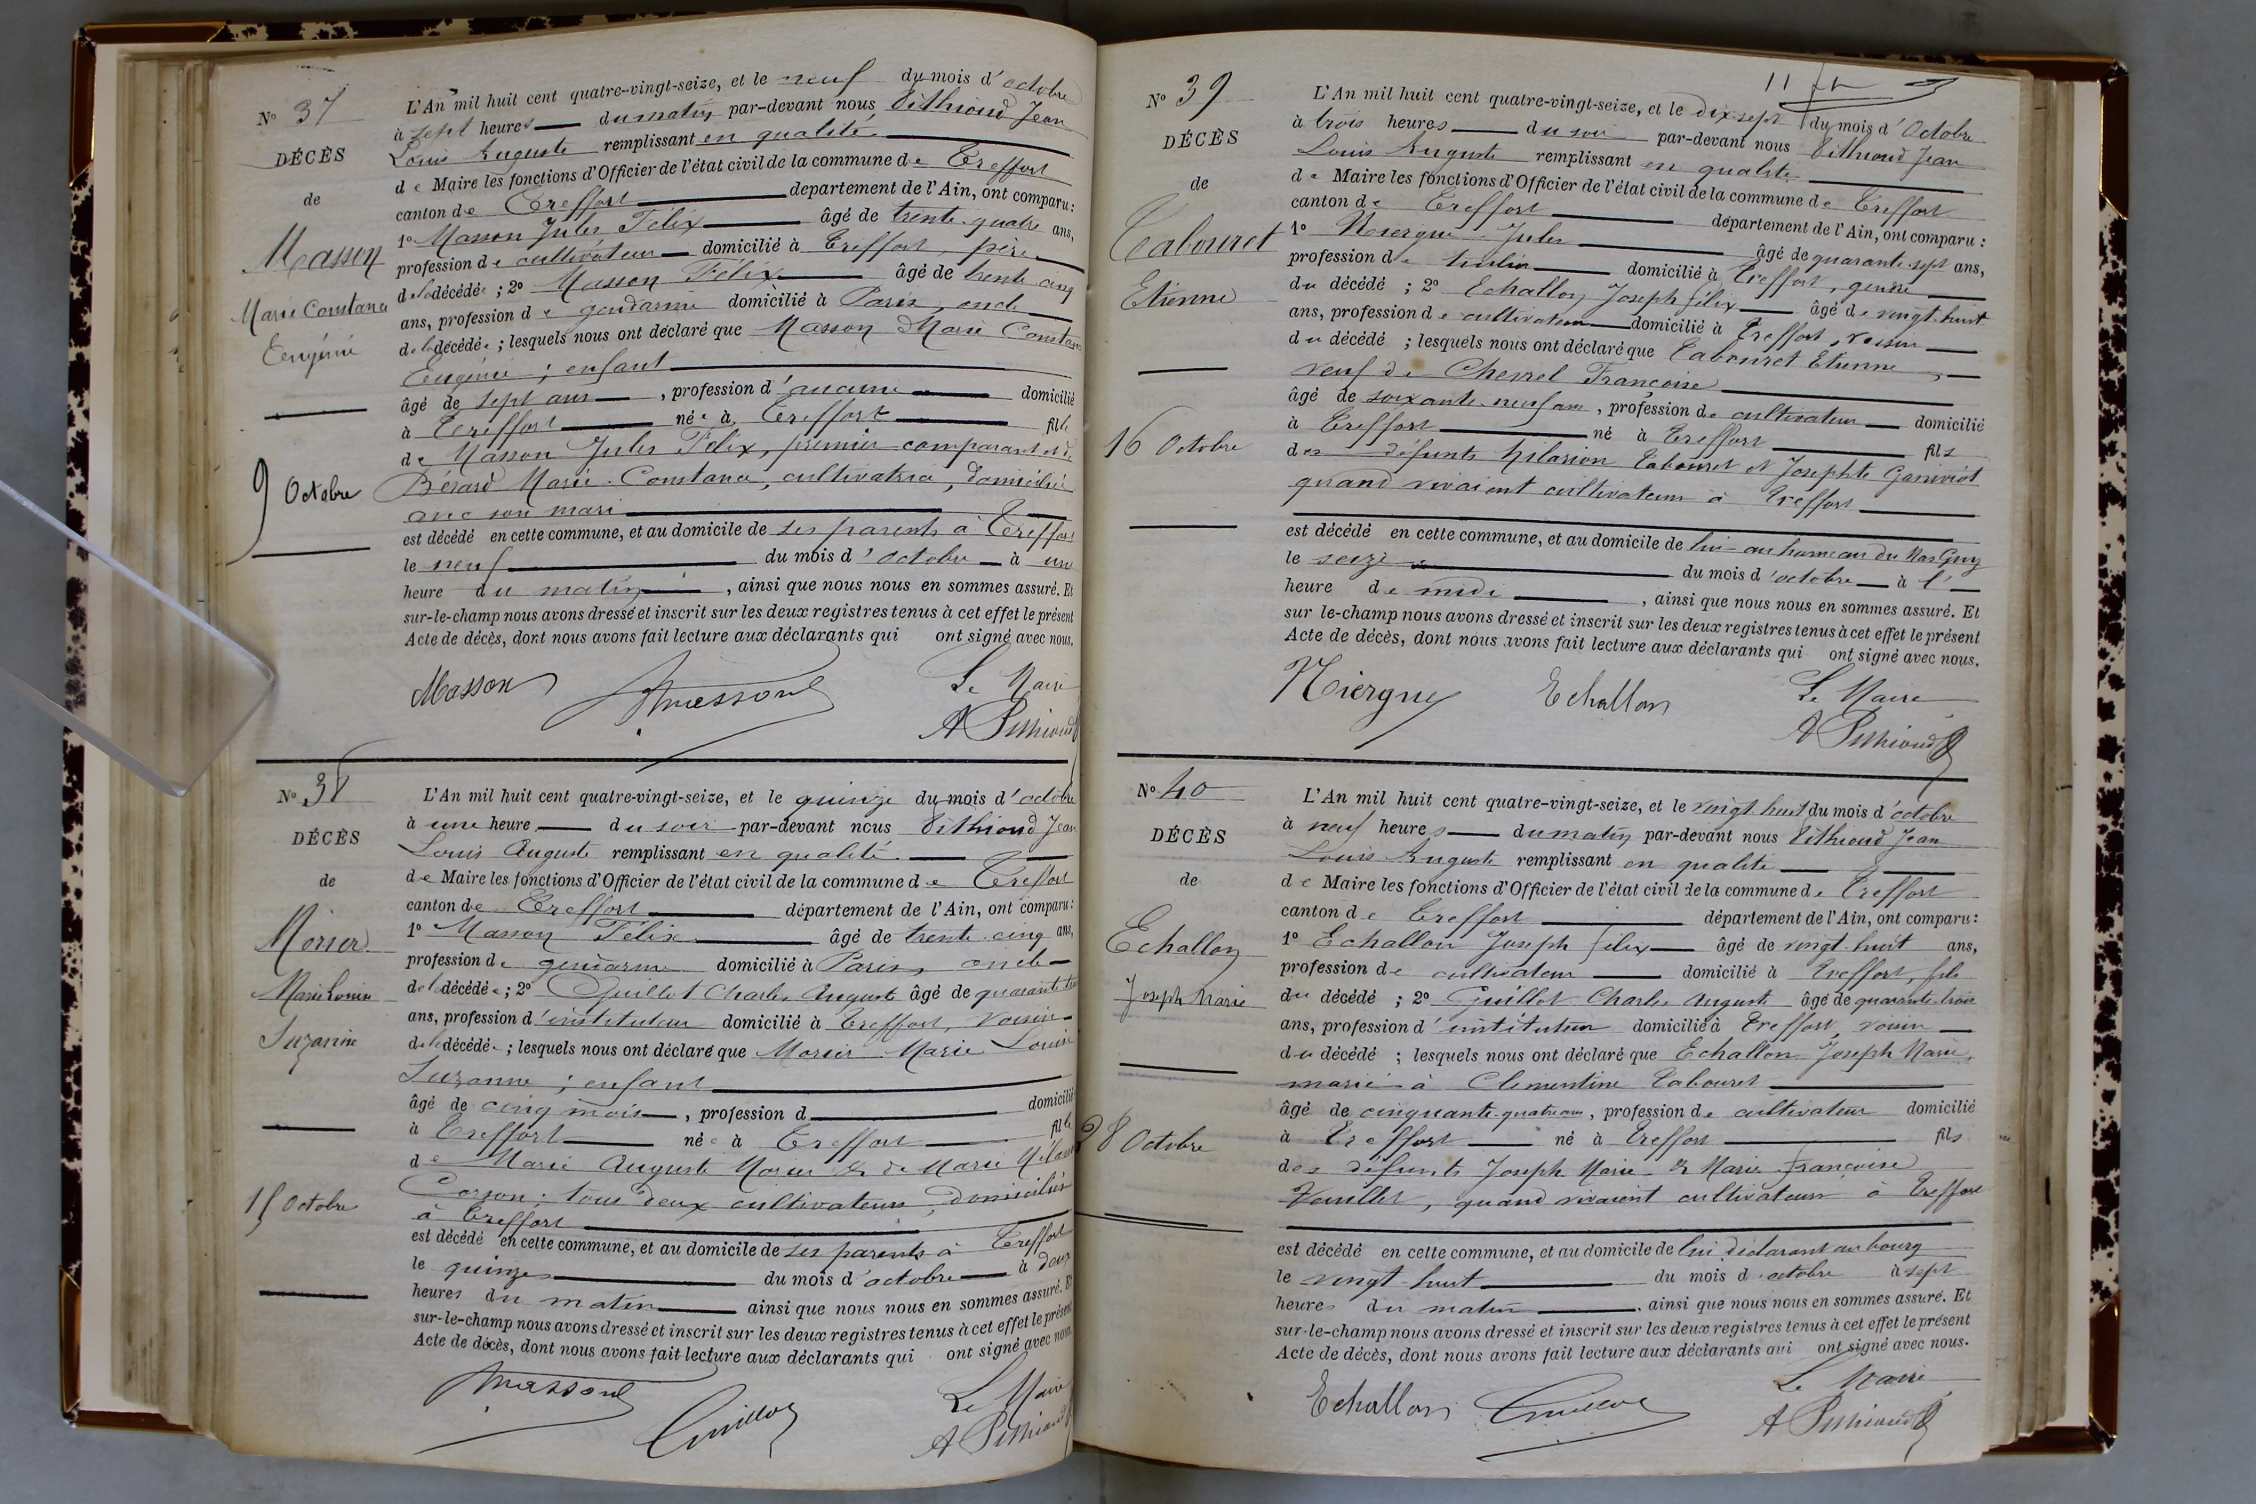 N° 37
DÉCÈS
de
Masson
Marie Constance
Eugénie
9 Octobre
L'An mil huit cent quatre-vingt-seize, et le neuf du mois d'octobre
à sept heures du matin par-devant nous Pithioud Jean
Louis Auguste remplissant en qualité
de Maire les fonctions d'Officier de l'état civil de la commune de Treffort
canton de Treffort département de l'Ain, ont comparu :
1° Masson Jules Félix âgé de trente-quatre ans,
profession de cultivateur domicilié à Treffort, père
de la décédée ; 2° Masson Félix âgé de trente cinq
ans, profession de gendarme domicilié à Paris, oncle
de la décédée ; lesquels nous ont déclaré que Masson Marie Constance
Eugénie ; enfant
âgé de sept ans, profession d'aucune domicilié
à Treffort née à Treffort fille
de Masson Jules Félix, premier comparant et de
Bérard Marie Constance, cultivatrice, domiciliée
avec son mari
est décédé en cette commune, et au domicile de ses parents à Treffort
le neuf du mois d'octobre à une
heure du matin, ainsi que nous nous en sommes assuré. Et
sur-le-champ nous avons dressé et inscrit sur les deux registres tenus à cet effet le présent
Acte de décès, dont nous avons fait lecture aux déclarants qui ont signé avec nous.
Masson Masson Le Maire
A Pithioud
N° 38
DÉCÈS
de
Morier
Marie Louise
Suzanne
15 Octobre
L'An mil huit cent quatre-vingt-seize, et le quinze du mois d'octobre
à une heure du soir par-devant nous Pithioud Jean
Louis Auguste remplissant en qualité
de Maire les fonctions d'Officier de l'état civil de la commune de Treffort
canton de Treffort département de l'Ain, ont comparu :
1° Masson Félix âgé de trente-cinq ans,
profession de gendarme domicilié à Paris, oncle
de la décédée ; 2° Guillot Charles Auguste âgé de quarante trois
ans, profession d'instituteur domicilié à Treffort, voisin
de la décédée ; lesquels nous ont déclaré que Morier Marie Louise
Suzanne ; enfant
âgé de cinq mois, profession d domicilié
à Treffort née à Treffort fille
de Marie Auguste Morier & de Marie Mélanie
Corson ; tous deux cultivateurs, domiciliés
à Treffort
est décédé en cette commune, et au domicile de ses parents à Treffort
le quinze du mois d'octobre à
heures du matin ainsi que nous nous en sommes assuré. Et
sur-le-champ nous avons dressé et inscrit sur les deux registres tenus à cet effet le présent
Acte de décès, dont nous avons fait lecture aux déclarants qui ont signé avec nous.
Masson Guillot Le Maire
A Pithioud
11
N° 39
DÉCÈS
de
Tabouret
Etienne
16 Octobre
L'An mil huit cent quatre-vingt-seize, et le dix-sept du mois d'Octobre
à trois heures du soir par-devant nous Pithioud Jean
Louis Auguste remplissant en qualité
de Maire les fonctions d'Officier de l'état civil de la commune de Treffort
canton de Treffort département de l'Ain, ont comparu :
1° Niergue Jules âgé de quarante sept ans,
profession de domicilié à Treffort, gendre
du décédé ; 2° Echallon Joseph félix âgé de vingt-huit
ans, profession de cultivateur domicilié à Treffort, voisin
du décédé ; lesquels nous ont déclaré que Tabouret Etienne,
veuf de Chevrel Françoise
âgé de soixante-neuf ans, profession de cultivateur domicilié
à Treffort né à Treffort fils
des défunts hilarion Tabouret et Josephte
quand vivaient cultivateurs à Treffort
est décédé en cette commune, et au domicile de lui au hameau du Mas Guy
le seize du mois d'octobre à l'
heure de midi, ainsi que nous nous en sommes assuré. Et
sur le-champ nous avons dressé et inscrit sur les deux registres tenus à cet effet le présent
Acte de décès, dont nous avons fait lecture aux déclarants qui ont signé avec nous.
Niergue Echallon Le Maire
A Pithioud
N° 40
DÉCÈS
de
Echallon
Joseph Marie
28 Octobre
L'An mil huit cent quatre-vingt-seize, et le vingt huit du mois d'octobre
à neuf heures du matin par-devant nous Pithioud Jean
Louis Auguste remplissant en qualité
de Maire les fonctions d'Officier de l'état civil de la commune de Treffort
canton de Treffort département de l'Ain, ont comparu :
1° Echallon Joseph félix âgé de vingt-huit ans,
profession de cultivateur domicilié à Treffort, fils
du décédé ; 2° Guillot Charles Auguste âgé de quarante-trois
ans, profession d'instituteur domicilié à Treffort voisin
du décédé ; lesquels nous ont déclaré que Echallon Joseph Marie,
marié à Clementine Tabouret
âgé de cinquante-quatre ans, profession de cultivateur domicilié
à Treffort né à Treffort fils
des défunts Joseph Marie & Marie françoise
Vauillet, quand vivaient cultivateurs à Treffort
est décédé en cette commune, et au domicile de lui déclarant au bourg
le vingt-huit du mois d'octobre à sept
heures du matin, ainsi que nous nous en sommes assuré. Et
sur-le-champ nous avons dressé et inscrit sur les deux registres tenus à cet effet le présent
Acte de décès, dont nous avons fait lecture aux déclarants qui ont signé avec nous.
Echallon Guillot Le Maire
A Pithioud